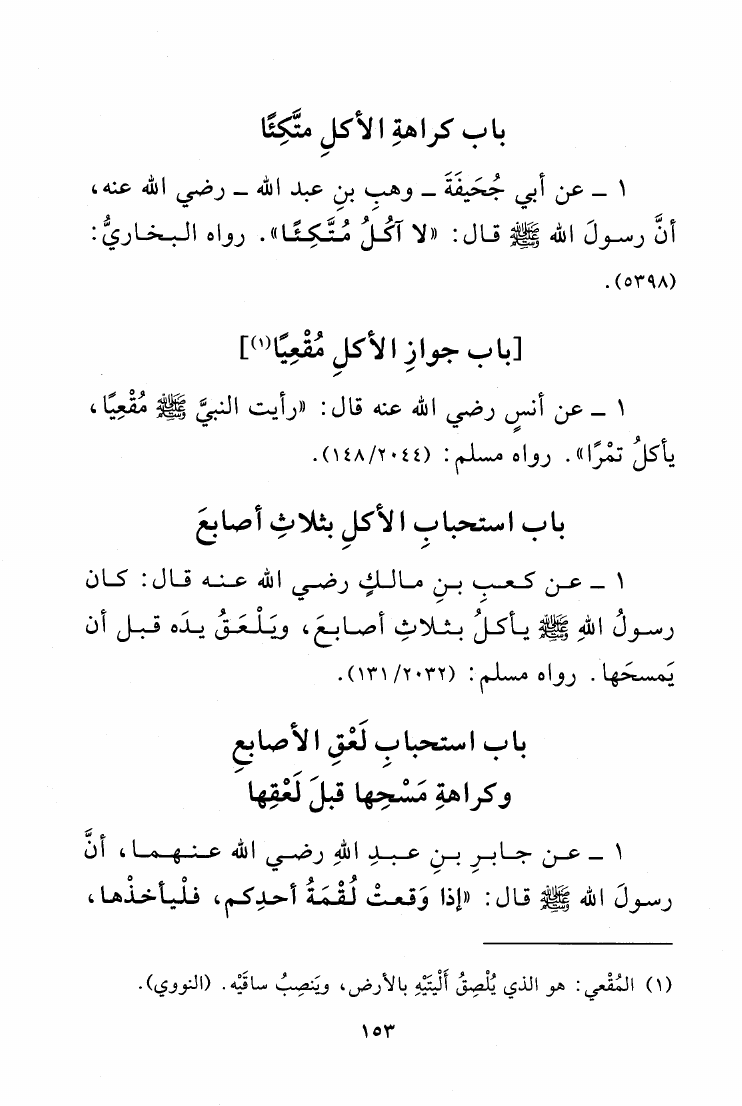 باب كراهةِ الأكلِ متَّكِئًا
١ ــ عن أبي جُحَيفَةَ ــ وهبِ بنِ عبد الله ــ رضي الله عنه،
أنَّ رسولَ الله ﷺ قال: «لا آكُلُ مُتَّكِئًا». رواه البخاريُّ:
(٥٣٩٨).
[باب جوازِ الأكلِ مُقْعِيًا(١)]
١ ــ عن أنسٍ رضي الله عنه قال: «رأيت النبيَّ ﷺ مُقْعِيًا،
يأكلُ تمْرًا». رواه مسلم: (١٤٨/٢٠٤٤).
باب استحبابِ الأكلِ بثلاثِ أصابعَ
١ ــ عن كعبِ بنِ مالكٍ رضي الله عنه قال: كان
رسولُ اللهِ ﷺ يأكلُ بثلاثِ أصابعَ، ويَلْعَقُ يدَه قبل أن
يَمسحَها. رواه مسلم: (١٣١/٢٠٣٢).
باب استحبابِ لَعْقِ الأصابعِ
وكراهةِ مَسْحِها قبلَ لَعْقِها
١ ــ عن جابرِ بنِ عبدِ اللهِ رضي الله عنهما، أنَّ
رسولَ الله ﷺ قال: «إذا وَقعتْ لُقْمَةُ أحدِكم، فلْيأخذْها،
(١) المُقْعي: هو الذي يُلْصِقُ أَلْيتَيْهِ بالأرض، ويَنصِبُ ساقَيْه. (النووي).
١٥٣